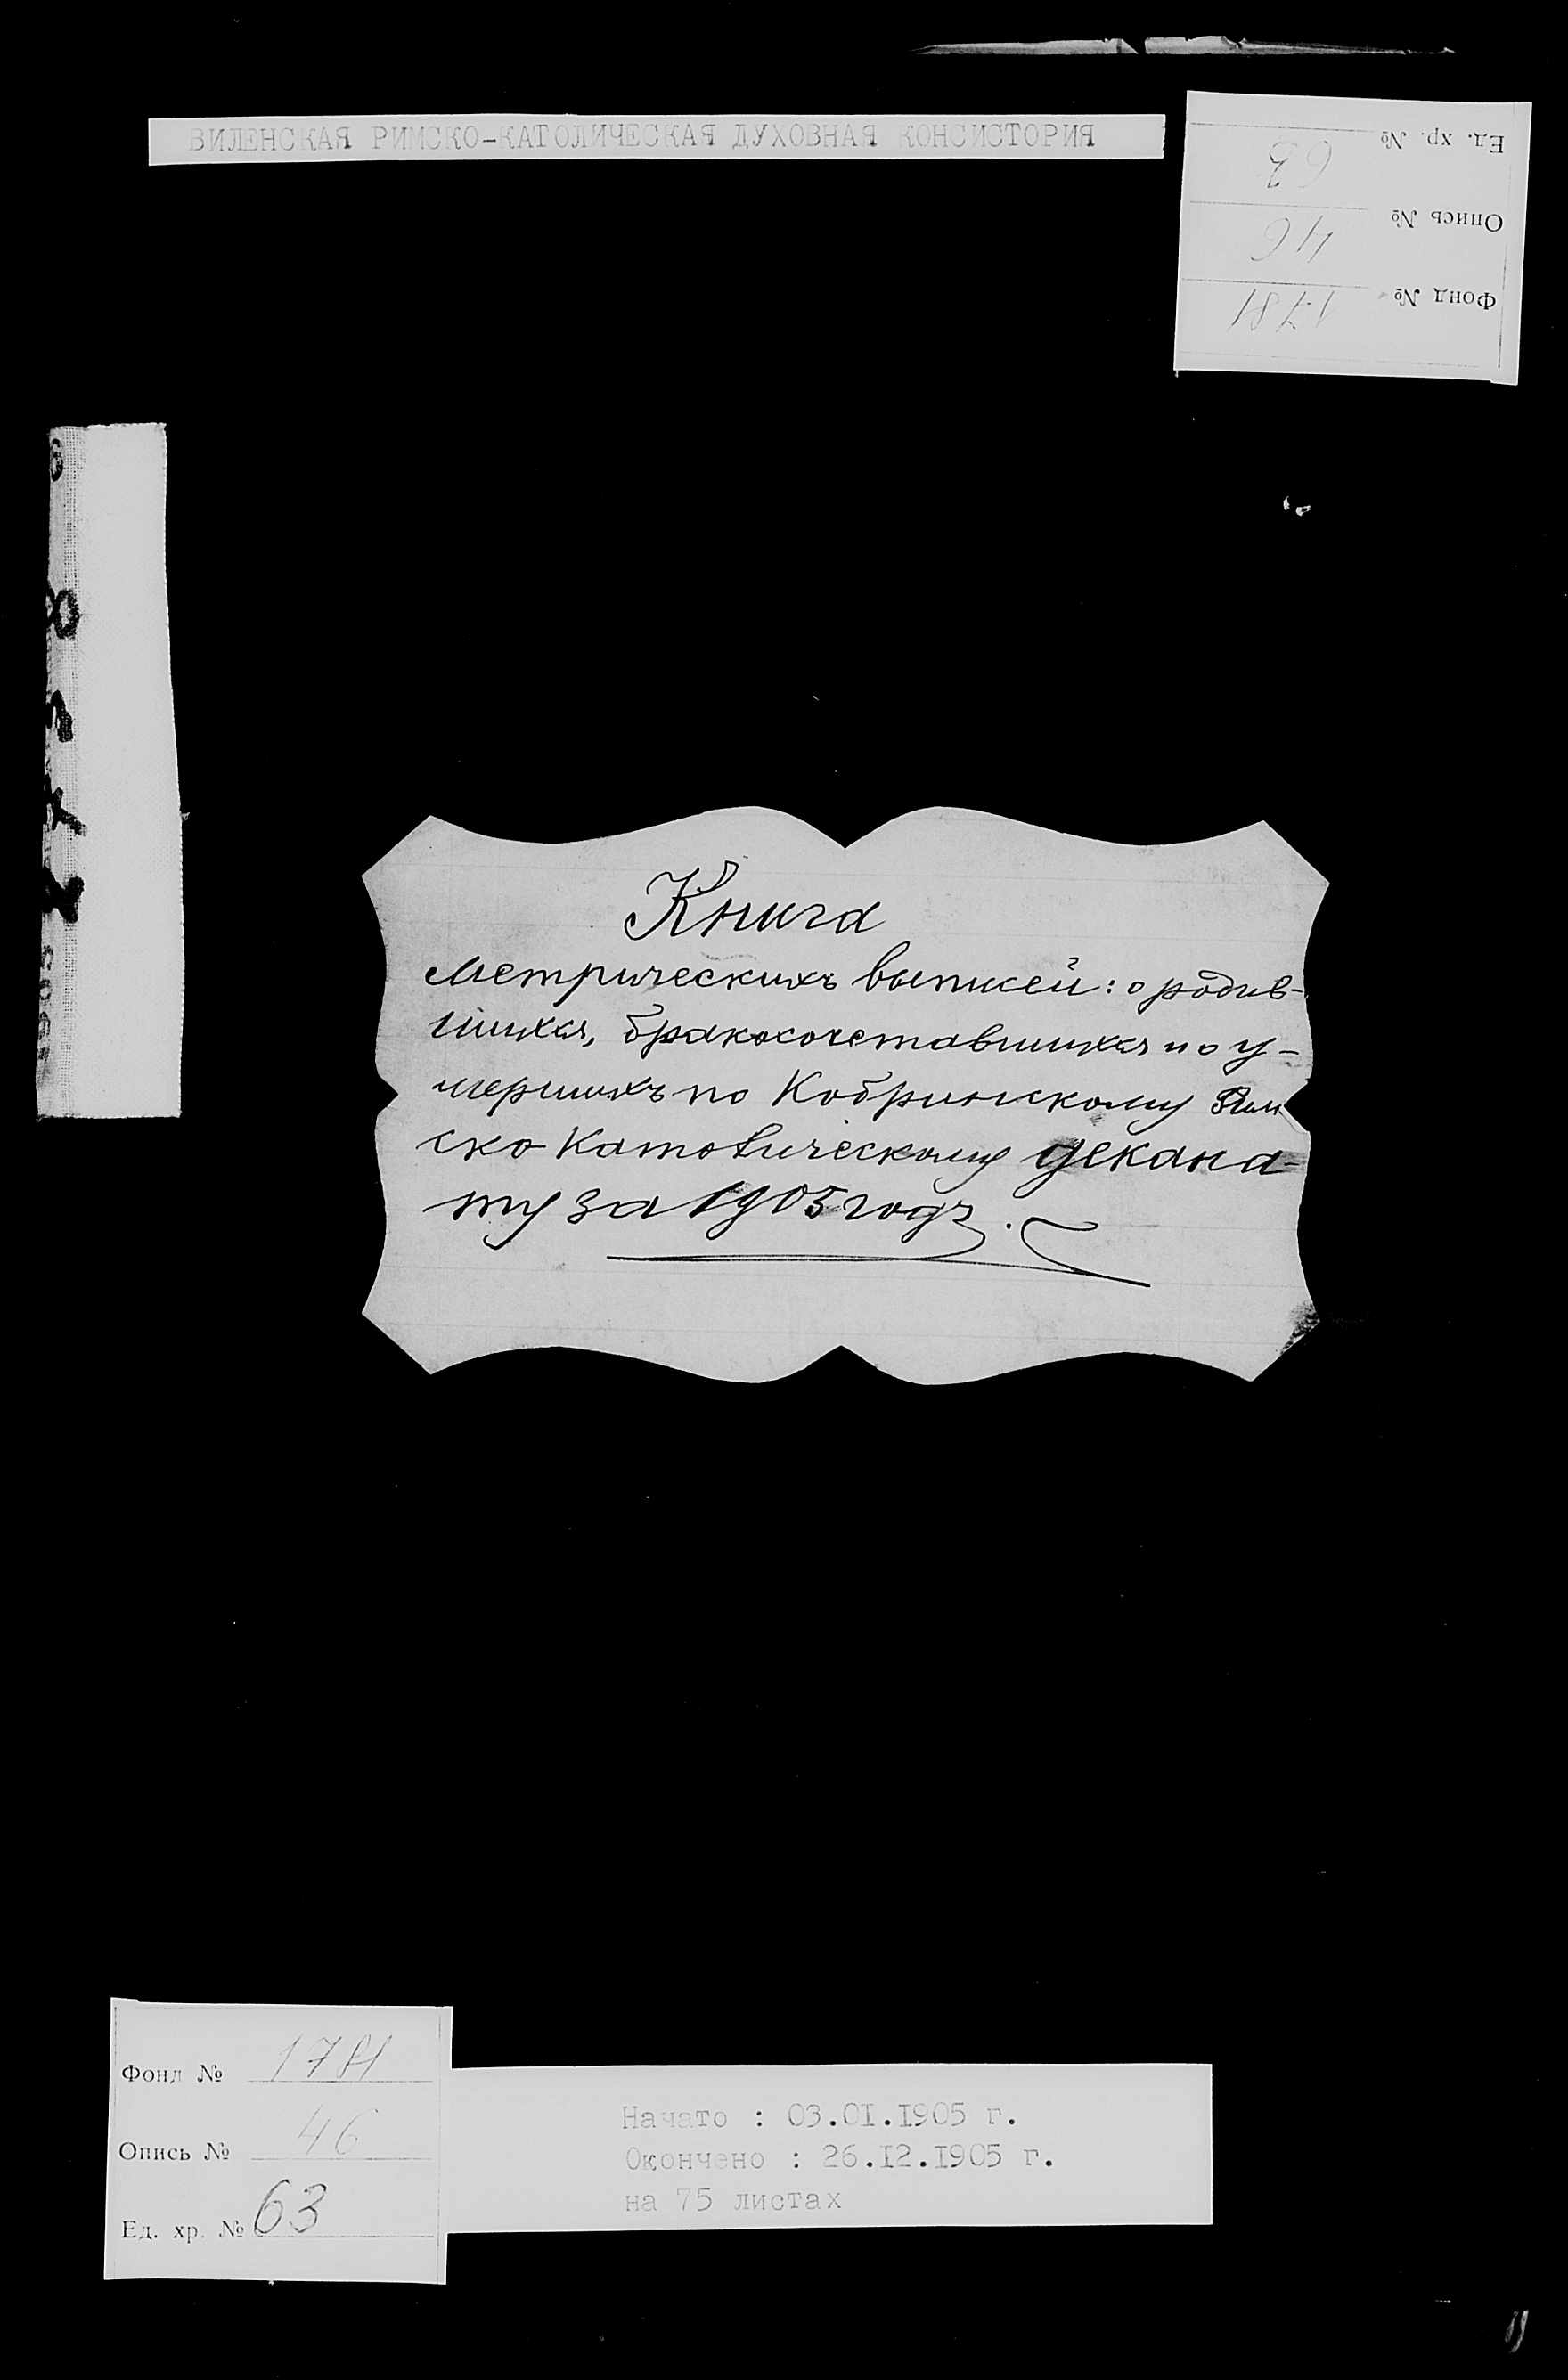 ВИЛЕНСКАЯ РИМСКО-КАТОЛИЧЕСКАЯ ДУХОВНАЯ КОНСИСТОРИЯ
Фонд № 1781
Опись № 46
Ед. хр. № 63
Книга
метрическихъ выписей: о родив-
шихся, бракосочетавшихся и о у-
мершихъ по Кобринскому Рим
ско Католическому декана-
ту за 1905 годъ.
Фонд № 1781
Опись № 46
Ед. хр. № 63
Начато : 03.01.1905 г.
Окончено : 26.12.1905 г.
на 75 листах